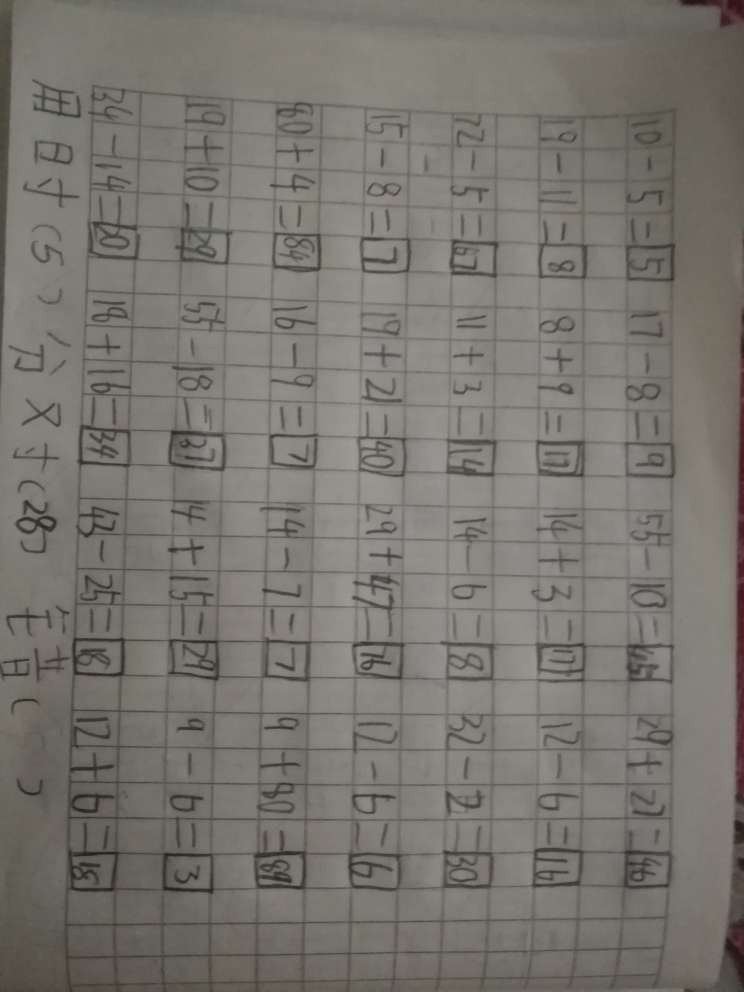 10-5=5 17-8=9 55-10=45 29+27=46
19-11=8 8+9=17 14+3=17 12-6=16
72-5=67 11+3=14 14-6=8 32-2=30
15-8=7 19+21=40 29+47=76 12-6=6
80+4=84 16-9=7 14-7=7 9+80=89
19+10=29 55-18=37 14+15=29 9-6=3
34-14=20 18+16=34 43-25=18 12+6=18
用时(5)分 对(28) 错( )